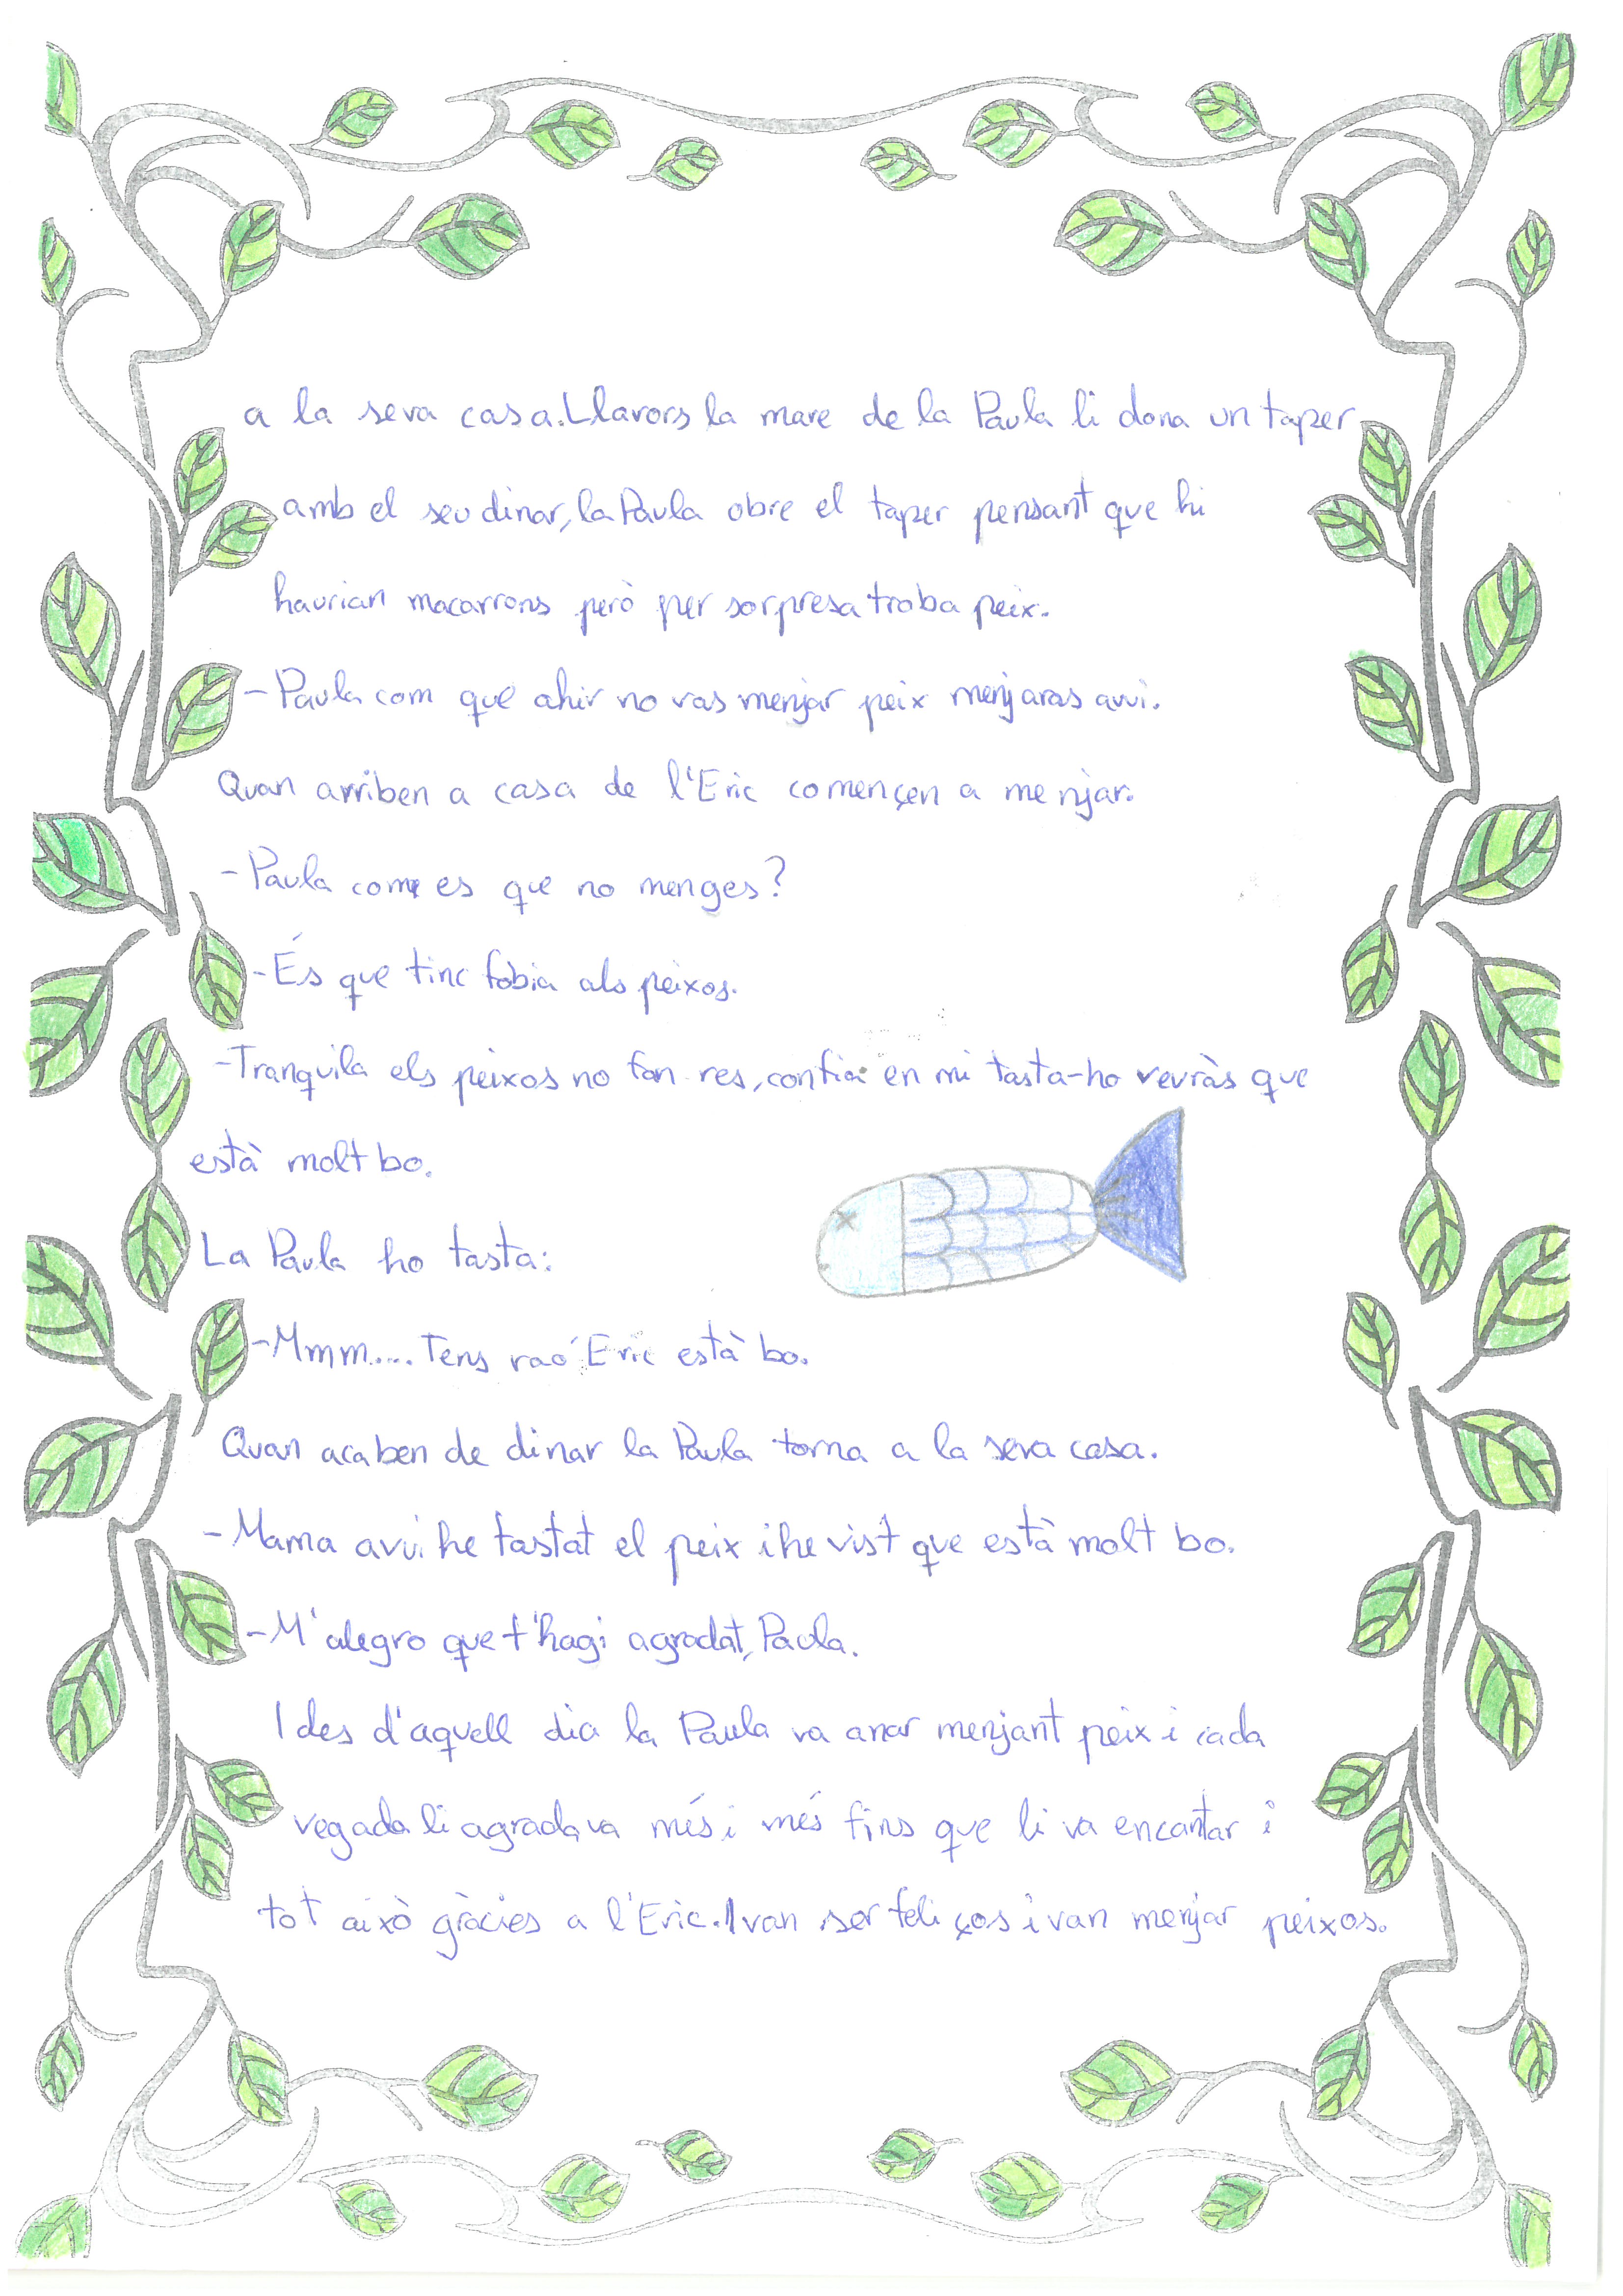 a la seva casa. Llavors la mare de la Paula li dona un taper
amb el seu dinar, la Paula obre el taper pensant que hi
haurian macarrons però per sorpresa troba peix.
-Paula com que ahir no vas menjar peix menjaras avui.
Quan arriben a casa de l'Eric començen a menjar.
-Paula com es que no menges?
-És que tinc fòbia als peixos.
-Tranquila els peixos no fan res, confia en mi tasta-ho veuràs que
està molt bo.
La Paula ho tasta:
-Mmm.... Tens raó Eric està bo.
Quan acaben de dinar la Paula torna a la seva casa.
-Mama avui he tastat el peix i he vist que està molt bo.
-M'alegro que t'hagi agradat, Paula.
I des d'aquell dia la Paula va anar menjant peix i cada
vegada li agradava més i més fins que li va encantar i
tot això gràcies a l'Eric. I van ser feliços i van menjar peixos.